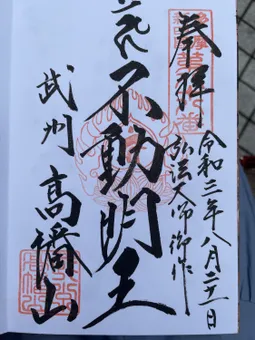 奉拝
令和三年八月二十一日
弘法大師御作
不動明王
武州
高幡山